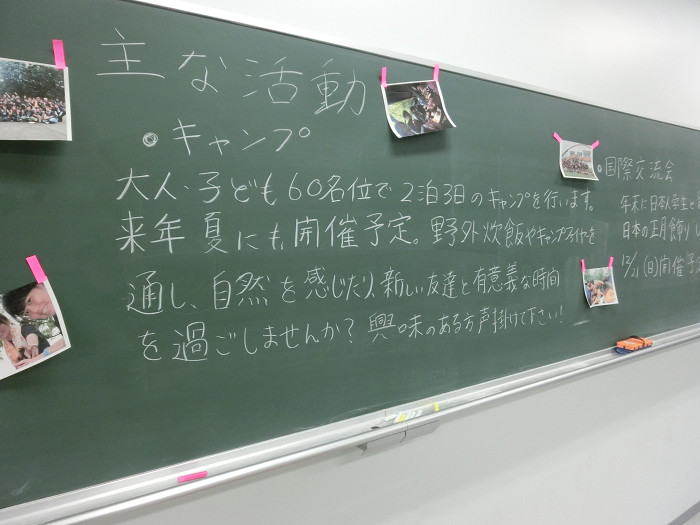 主な活動
・キャンプ
大人・子ども60名位で2泊3日のキャンプを行います。
来年夏にも開催予定。野外炊飯やキャンプファイヤーを
通し、自然を感じたり、新しい友達と有意義な時間
を過ごしませんか？興味のある方声掛けて下さい！
・国際交流会
年末に日本人学生と
日本の正月飾り
12/21(日)開催予定